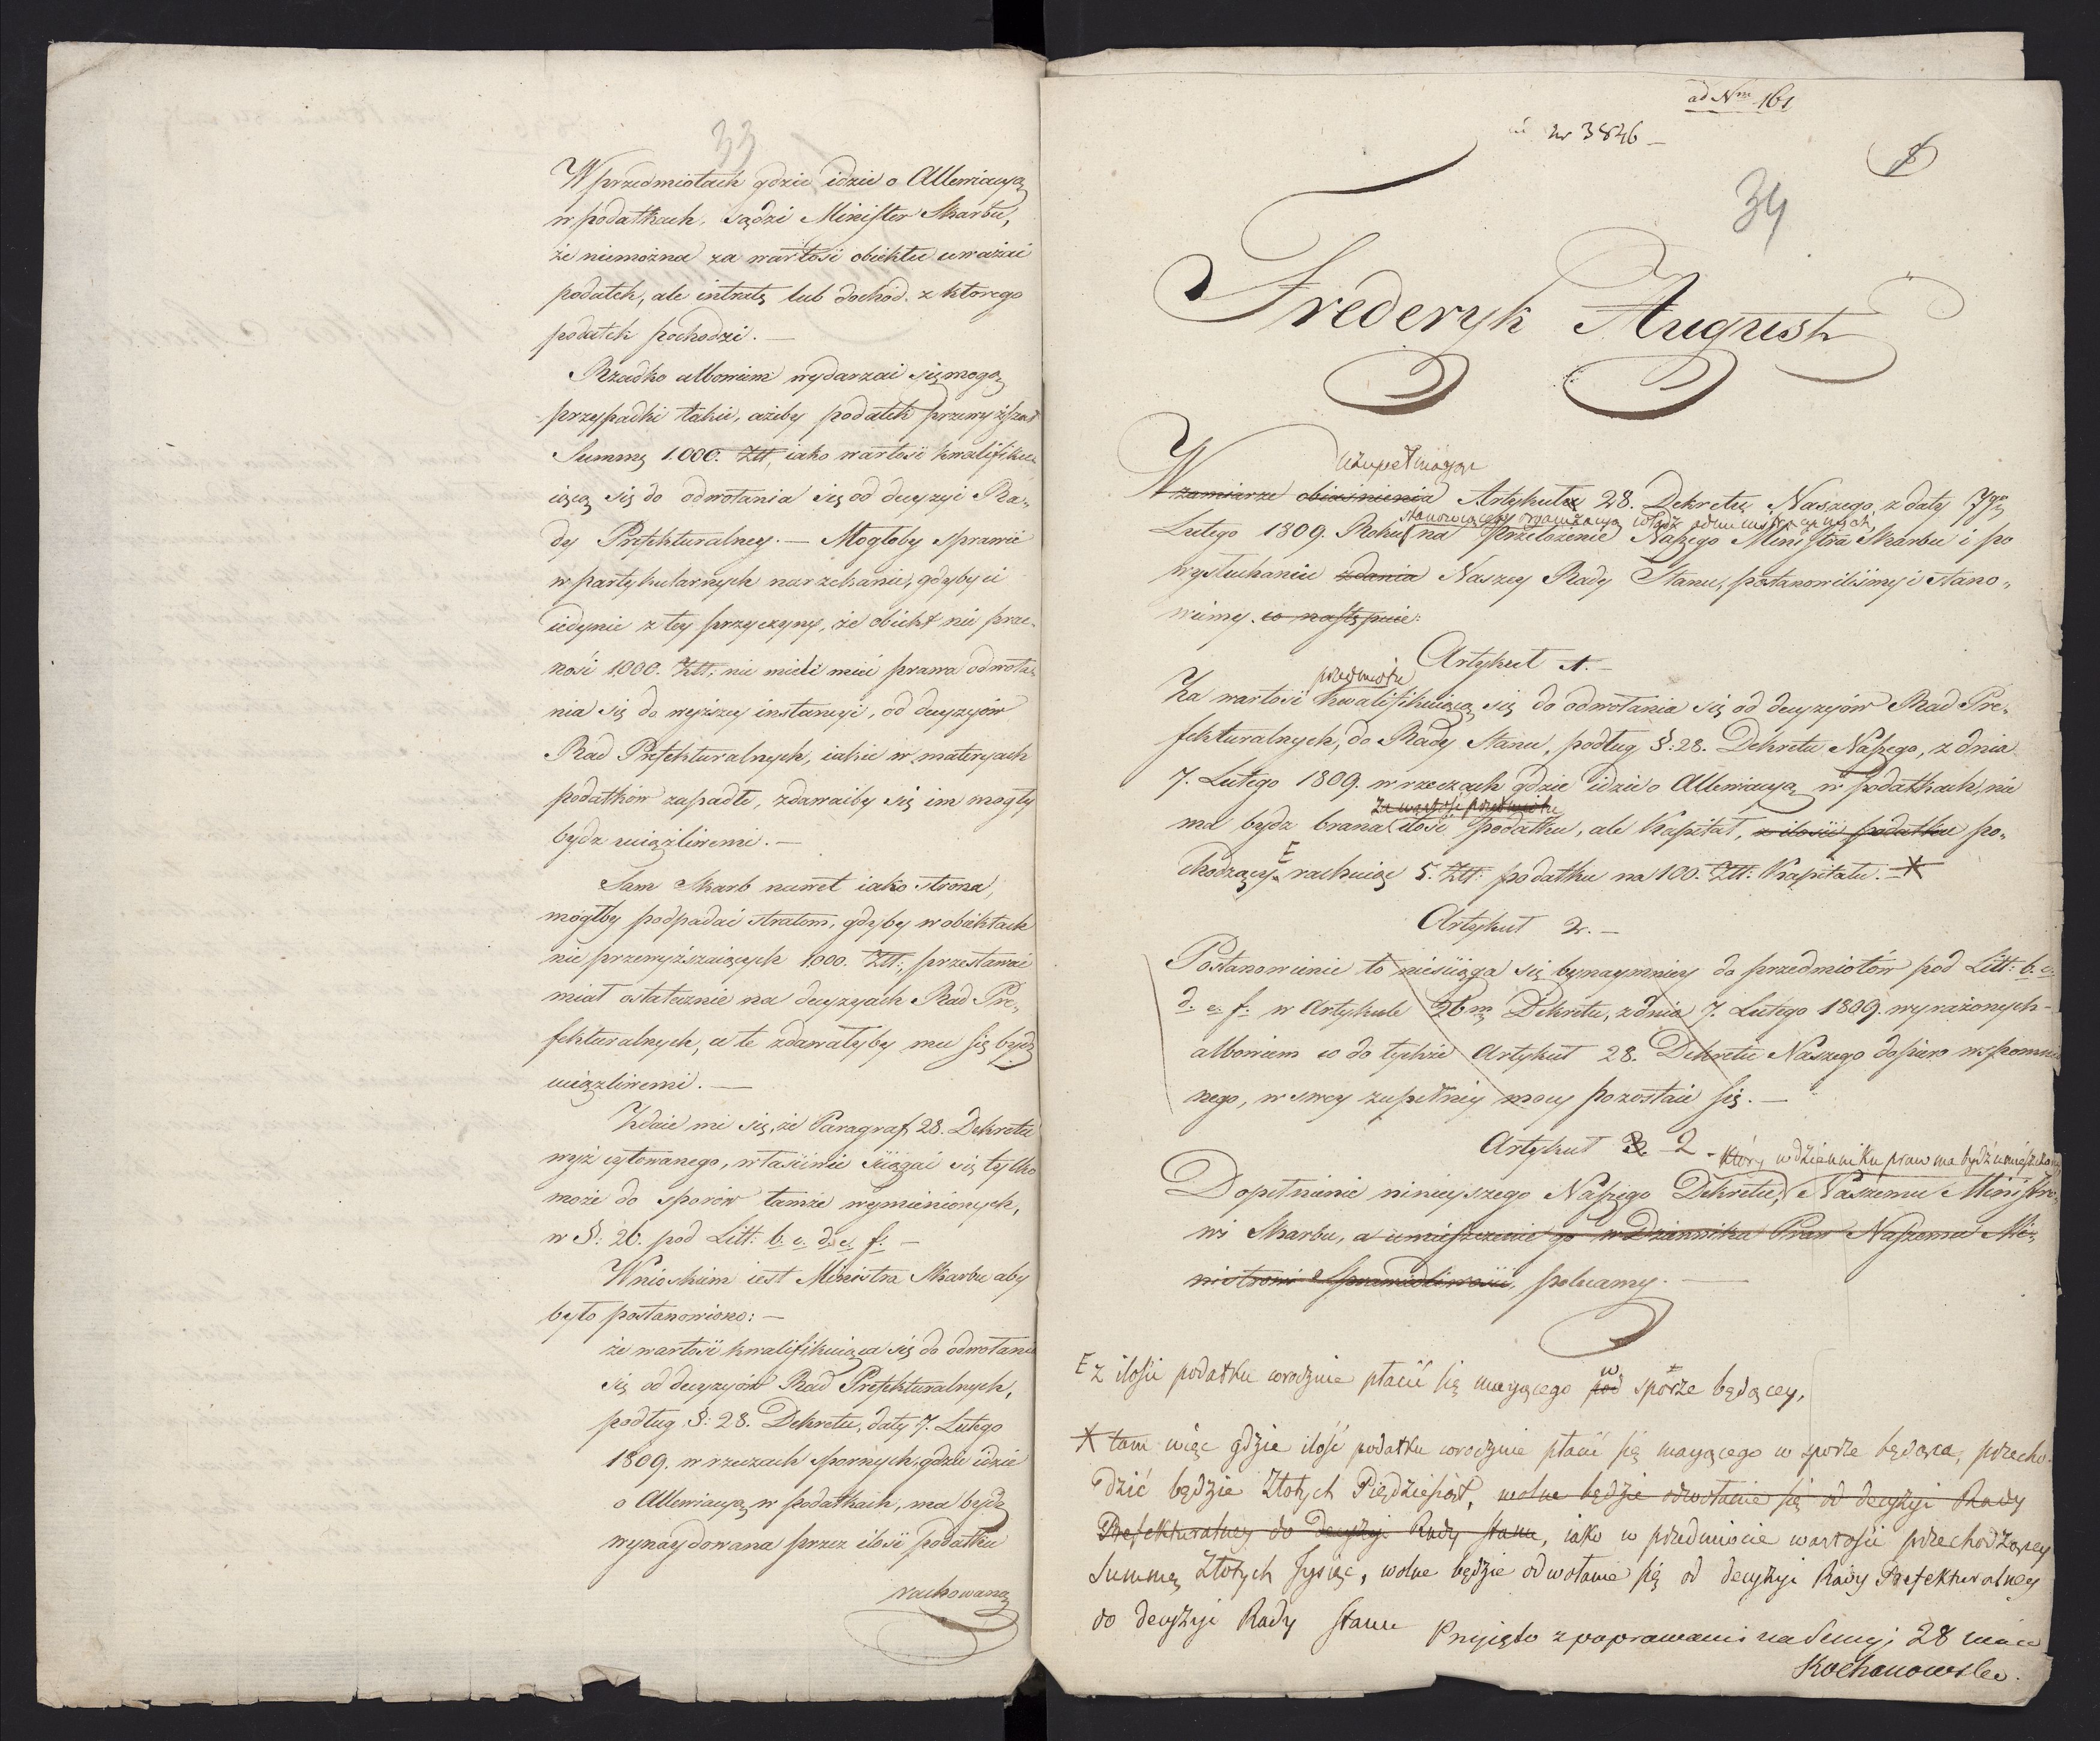 33
W przedmiotach gdzie idzie o Allewiacyą
w podatkach, sądzi Minister Skarbu,
że niemożna za wartość obiektu uważać
podatek, ale intratę lub dochod z ktorego
podatek pochodzi. —
Rzadko albowiem wydarzać się mogą
przypadki takie, ażeby podatek przewyższał
Summę 1.000. Złł, iako wartość kwalifiku-
iącą się do odwołania się od decyzyi Ra-
dy Prefekturalney. — Mogłoby sprawić
w partykularnych narzekanie, gdyby ci
iedynie z tey przyczyny, że obiekt nie prze-
nosi 1,000. Złł; nie mieli mieć prawa odwoła-
nia się do wyższey instancyi, od decyzyów
Rad Prefekturalnych, iakie w materyach
podatków zapadłe, zdawaćby się im mogły
bydź uciążliwemi. —
Sam Skarb nawet iako strona,
mógłby podpadać stratom, gdyby w obiektach
nie przewyższaiących 1,000. Złł:, przestawać
miał ostatecznie na decyzyach Rad Pre-
fekturalnych, a te zdawałyby mu się bydź
uciążliwemi. —
Zdaie mi się, że Paragraf 28. Dekretu
wyż cytowanego, właściwie ściągać się tylko
może do sporów tamże wymienionych,
w §: 26. pod Litt: b. c. d. e. f: —
Wnioskiem iest Ministra Skarbu aby
było postanowiono: —
że wartość kwalifikuiąca się do odwołania
się od decyzyów Rad Prefekturalnych,
podług §: 28. Dekretu, daty 7. Lutego
1809. w rzeczach spornych, gdzie idzie
o Allewiacyą w podatkach, ma bydź
wynaydowana przez ilość podatku
rachowaną
ad Nm 161
nr 3846 —
34
Fryderyk August
Uzupełniaiąc
W zamiarze obiaśnienia Artykułu 28. Dekretu Naszego, z daty 7go
stanowiącego organizacyą władz administracyinych,
Lutego 1809. Roku na przełożenie Naszego Ministra Skarbu i po
wysłuchaniu zdania Naszey Rady Stanu, postanowiliśmy i stano-
wimy. co następuie:
Artykuł 1. —
przedmiotu
Za wartość kwalifikuiącą się do odwołania się od decyzyów Rad Pre-
fekturalnych, do Rady Stanu, podług §: 28. Dekretu Naszego, z dnia
7. Lutego 1809. w rzeczach gdzie idzie o Allewiacyą w podatkach, nie
za wartość przedmiotu
ma bydź brana ilość podatku, ale Kapitał, z ilości podatku po-
chodzący E rachuiąc 5. Złł: podatku na 100. Złł: Kapitału. — *
Artykuł 2. —
Postanowienie to nieściąga się bynaymniey do przedmiotów pod Litt: b. c.
d. e. f: w Artykule 26m Dekretu, z dnia 7. Lutego 1809. wyrażonych —
albowiem co do tychże Artykuł 28. Dekretu Naszego dopiero wspomnio
nego, w swey zupełney mocy pozostaie się. —
Artykuł 3. 2. —
który w dzienniku praw ma bydź umieszczony,
Dopełnienie ninieyszego Naszego Dekretu, Naszemu Ministro-
wi Skarbu, a umieszczenie go w Dzienniku Praw Naszemu Mi-
nistrowi Sprawiedliwości, polecamy. —
E z ilości podatku corocznie płacić się maiącego pod w sporze będącey,
* tam więc gdzie ilość podatku corocznie płacić się maiącego w sporze będąca, przecho-
dzić będzie Złotych Pięćdziesiąt, wolne będzie odwołanie się od decyzyi Rady
Prefekturalney do decyzyi Rady Stanu, iako w przedmiocie wartości przechodzącey
Summę Złotych Tysiąc, wolne będzie odwołanie się od decyzyi Rady Prefekturalney
do decyzyi Rady Stanu
Przyięto z poprawami na Sessyi 28
Kochanowski.